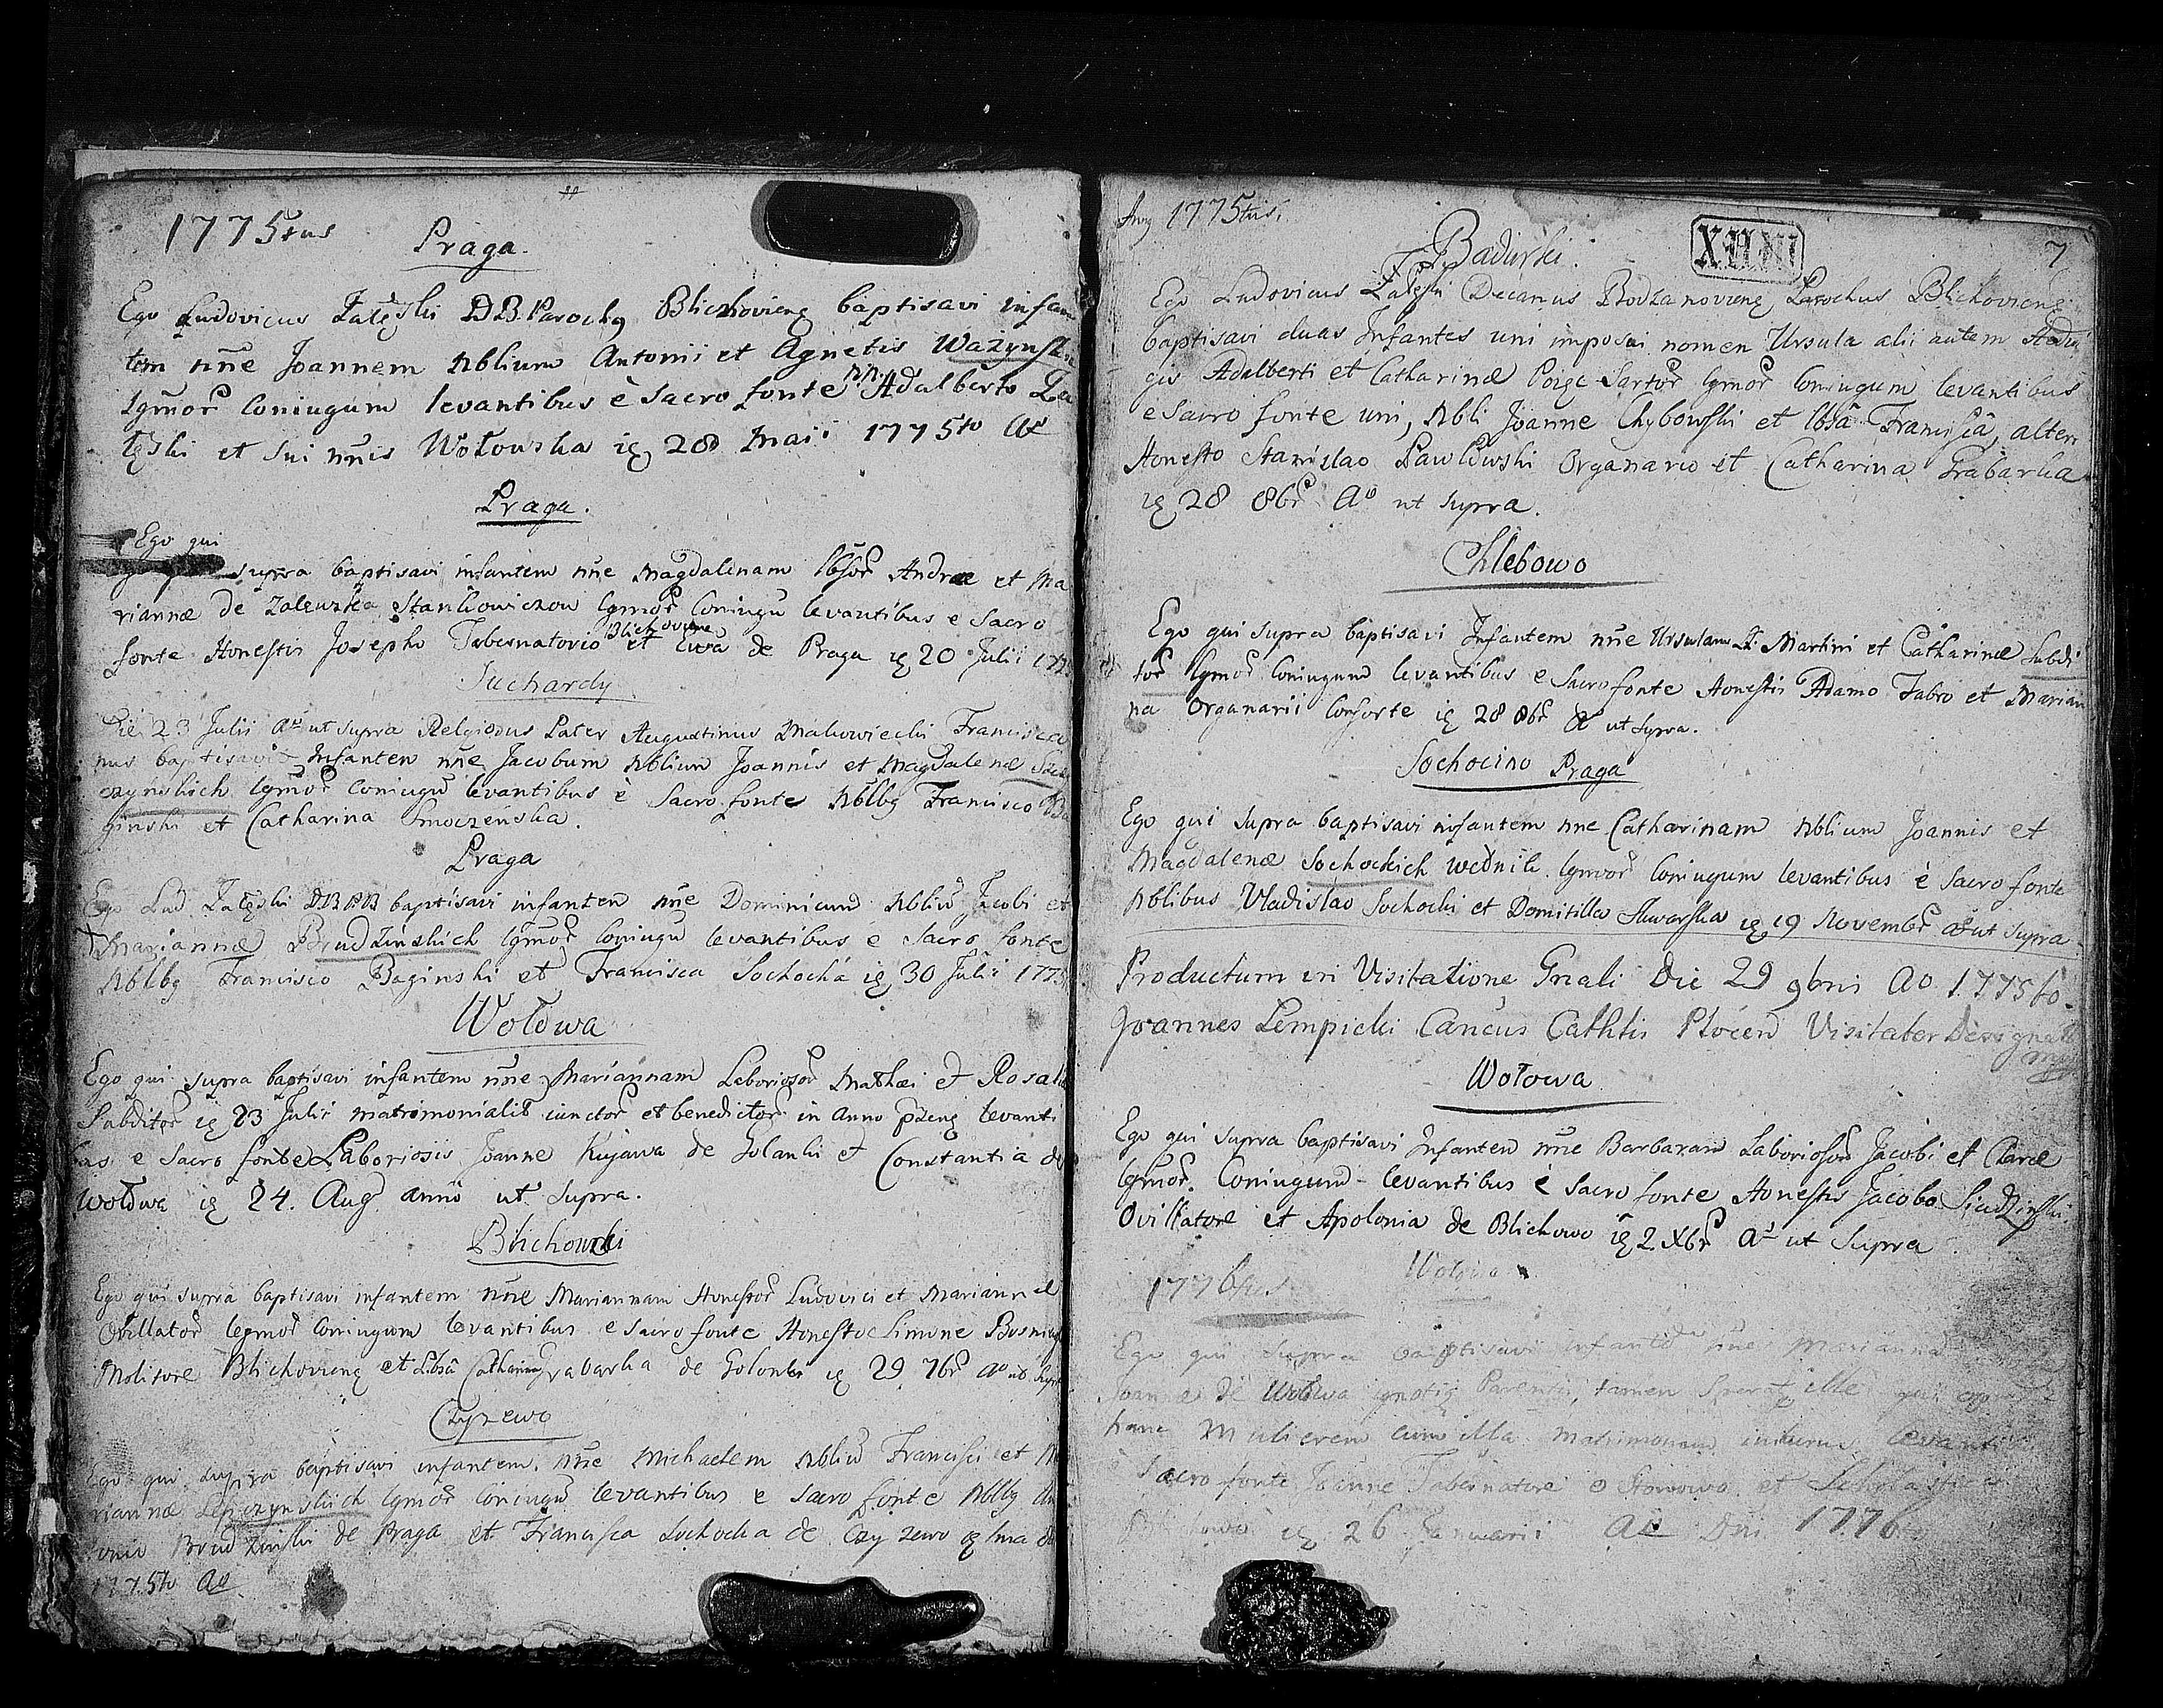 1775tus
Praga.
Ego Ludovicus Zalęski DB. Parochq Blichovieng baptisavi infan
tem nñe Joannem Nblium Antonii et Agnetis Ważynski
lgmor Coniugum levantibus è Sacro fonte nn. Adalberto Za
lęski et sui nñis Wołowska ię 28 Maii 1775to Ao
Praga.
Ego qui
supra baptisavi infantem nñe Magdalenam lbsor Andreæ et Ma
riannæ de Zalewska Stankowiczow lgmor Coniugū levantibus e Sacro
fonte Honestis Josepho Tabernatorio Blichoviene et Ewa de Praga ię 20 Julii 177
Suchardy
Die 23 Julii Ao ut supra Religiosus Pater Augustinus Makowiecki Francisca
nus baptisavit Infantem nñe Jacobum Nblium Joannis et Magdalenæ
czynskich lgmor Coniugū levantibus è Sacro fonte Nblbg Francisco Ba
ginski et Catharina Smoczenska.
Praga
Ego Lud. Zalęski DBPB baptisavi infantem nñe Dominicum Nbliū Jacobi et
Mariannæ Brudzinskich lgmor Coniugū levantibus e Sacro fonte
Nblbg Francisco Baginski et Francisca Sochocka ię 30 Julii 1775
Wołowa
Ego qui supra baptisavi infantem nñe Mariannam Laboriosor Mathæi et Rosali
Subditor ię 23 Julii matrimonialit iunctor et benedictor in anno præng levanti
bus e Sacro fonte Laboriosis Joanne Kujawa de Golanki et Constantia de
Wołowa ię 24. Aug anno ut supra.
Blichowski
Ego qui supra baptisavi infantem nñe Mariannam Honestor Ludovici et Mariannæ
Ovillator legmor Coniugum levantibus e Sacro fonte Honestoe Simone
Molitore Blichovieng et Lbsâ Catharina Grabarka de Golonki ię 29 7br Ao ut supra
Czyzewo
Ego qui supra baptisavi infantem nñe Michaelem Nbliū Francisci et Ma
riannæ Lepczynskich lgmor Coniugū levantibus e Sacro fonte Nblbg An
tonio Brudzinski de Praga et Francisca Sochocka de Czyzewo
1775to Ao
Ang 1775tus.
7
Badurski.
Ego Ludovicus Zalęski Decanus Bodzanovieng Parochus Blichovieng
baptisavi duas Infantes uni imposui nomen Ursula alii autem Hedvi
gis Adalberti et Catharinæ Sartor lgmor Coniugum levantibus
e Sacro fonte uni, Nbli Joanne Chybowski et lbsâ Franciscâ, alteri
Honesto Stanislao Pawłowski Organario et Catharina Grabarka
ię 28 8br Ao ut supra.
Chlebowo
Ego qui supra baptisavi Infantem nñe Ursulam L. Martini et Catharinæ Subdi
tor lgmor Coniugum levantibus e Sacro fonte Honestis Adamo Fabro et Marian
na Organarii Consorte ię 28 8br Ao ut supra.
Sochocino Praga
Ego qui supra baptisavi infantem nne Catharinam Nblium Joannis et
Magdalenæ Sochockich lgmor Coniugum levantibus è Sacro fonte
Nblibus Vladislao Sochocki et Domitilla ię 19 Novembr Ao ut supra
Productum in Visitatione Gnali Die 29 9bris Ao 1775to.
Joannes Lempicki Cancus Cathlis Plocen Visitator Designatus
mp
Wołowa
Ego qui supra baptisavi Infantem nñe Barbaram Laboriosor Jacobi et Claræ
lgmor. Coniugum levantibus è Sacro fonte Honestis Jacobo
Ovillatore et Apolonia de Blichowo ię 2 Xbr Ao ut supra.
1776tus Wołowa
Ego qui supra baptisavi infantē nñe Mariannā
Joannæ de Wołowa ignotis Parentis, tamen ille qui
hanc Mulierem cum illa matrimonium levanti
è Sacro fonte Joanne Tabernatore et Scholastica
ię 26 Januarii Ao Dni 1776